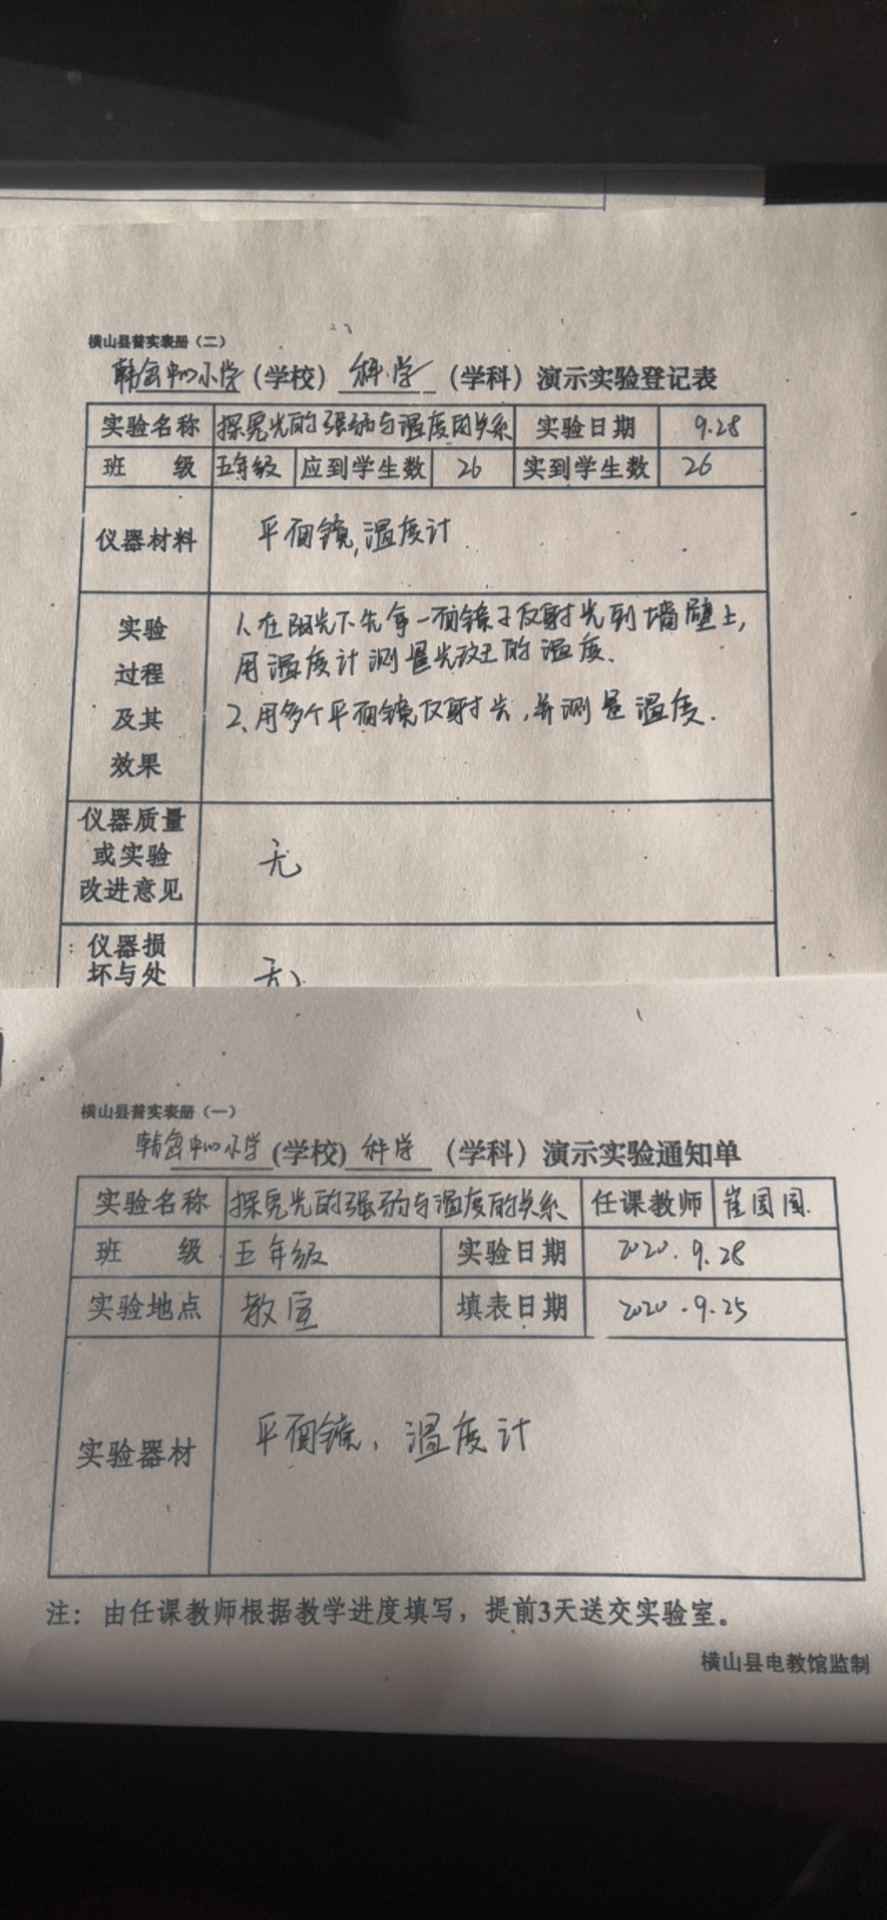 横山县普实表册（二）
韩岔中心小学（学校）科学（学科）演示实验登记表
实验名称 探究光的强弱与温度的关系 实验日期 9.28
班 级 五年级 应到学生数 26 实到学生数 26
仪器材料 平面镜,温度计
实验
过程
及其
效果
1、在阳光下先拿一面镜子反射光到墙壁上,
用温度计测量光斑的温度.
2、用多个平面镜反射光,并测量温度.
仪器质量
或实验
改进意见
无
仪器损
坏与处
无
横山县普实表册（一）
韩岔中心小学(学校)科学（学科）演示实验通知单
实验名称 探究光的强弱与温度的关系 任课教师 崔园园.
班 级 五年级 实验日期 2020.9.28
实验地点 教室 填表日期 2020.9.25
实验器材 平面镜、温度计
注：由任课教师根据教学进度填写，提前3天送交实验室。
横山县电教馆监制